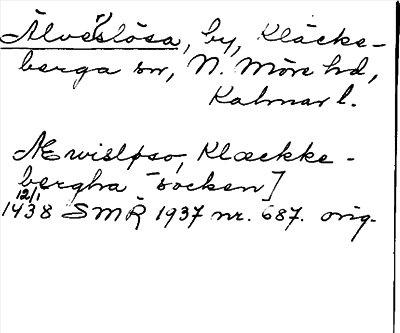 Älveslösa, by, Kläcke-
berga sn, N. Möre hd,
Kalmar l.
Ælwisløso, Klæckke-
bergha socken]
12/1
1438 SMR 1937 nr. 687. orig.